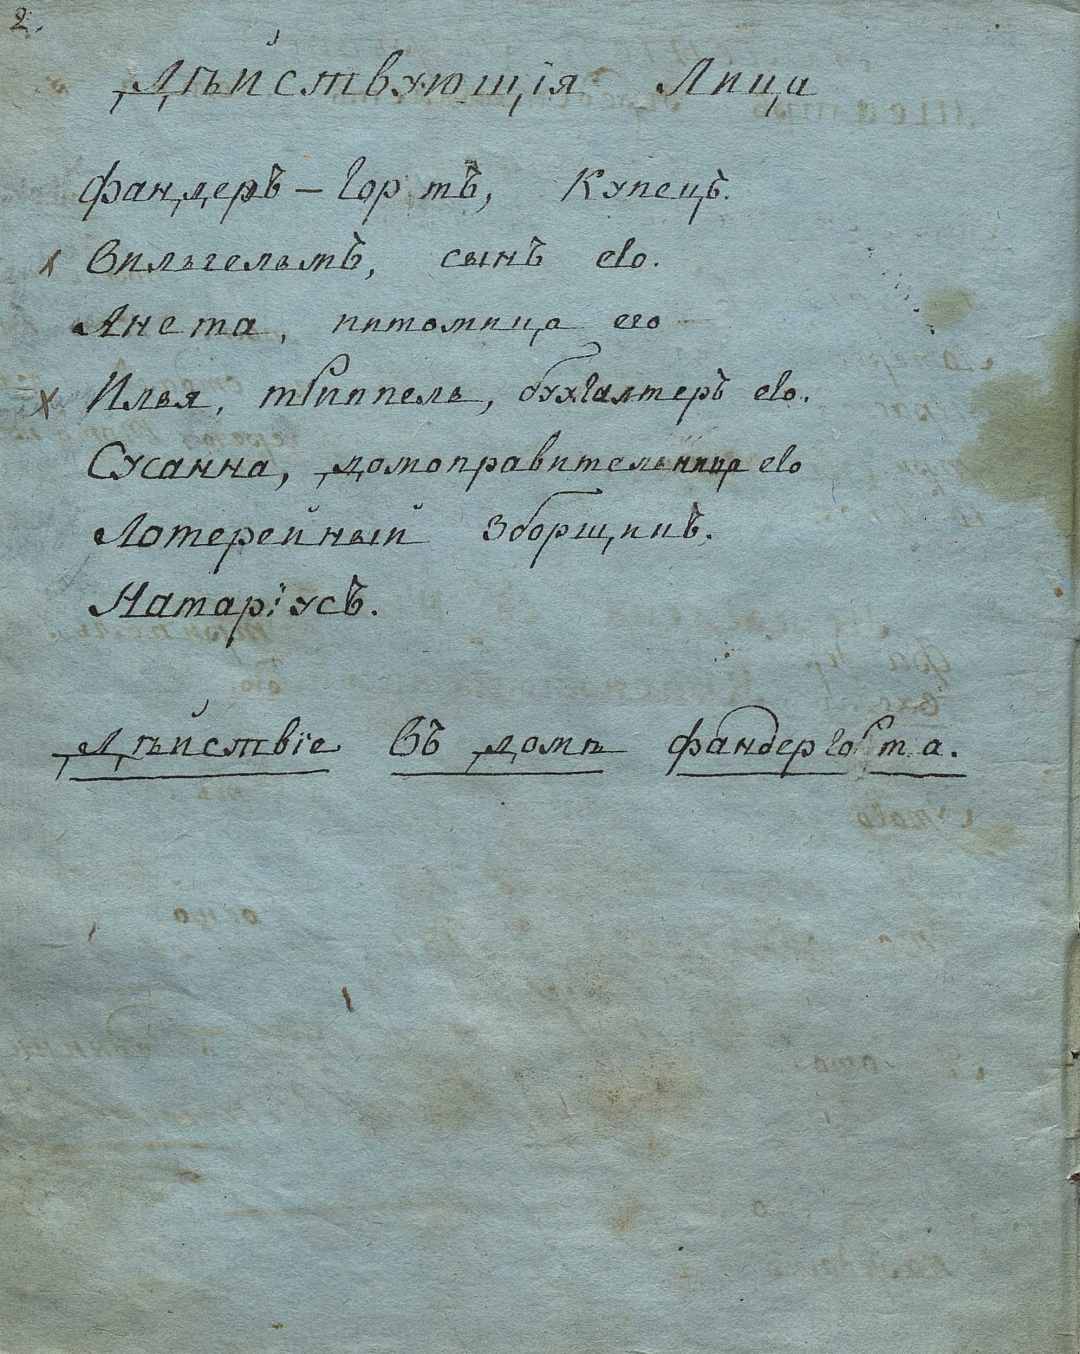 2.
Дѣйствующія Лица
Фандеръ-Гортъ, Купецъ.
х Вильгельмъ, сынъ его.
Анета, питомица его
х Илья, триппель, бухгалтеръ его.
Сусанна, домоправительница его
Лотерейный Зборщикъ.
Натаріусъ.
Дѣйствіе въ домѣ Фандергорта.